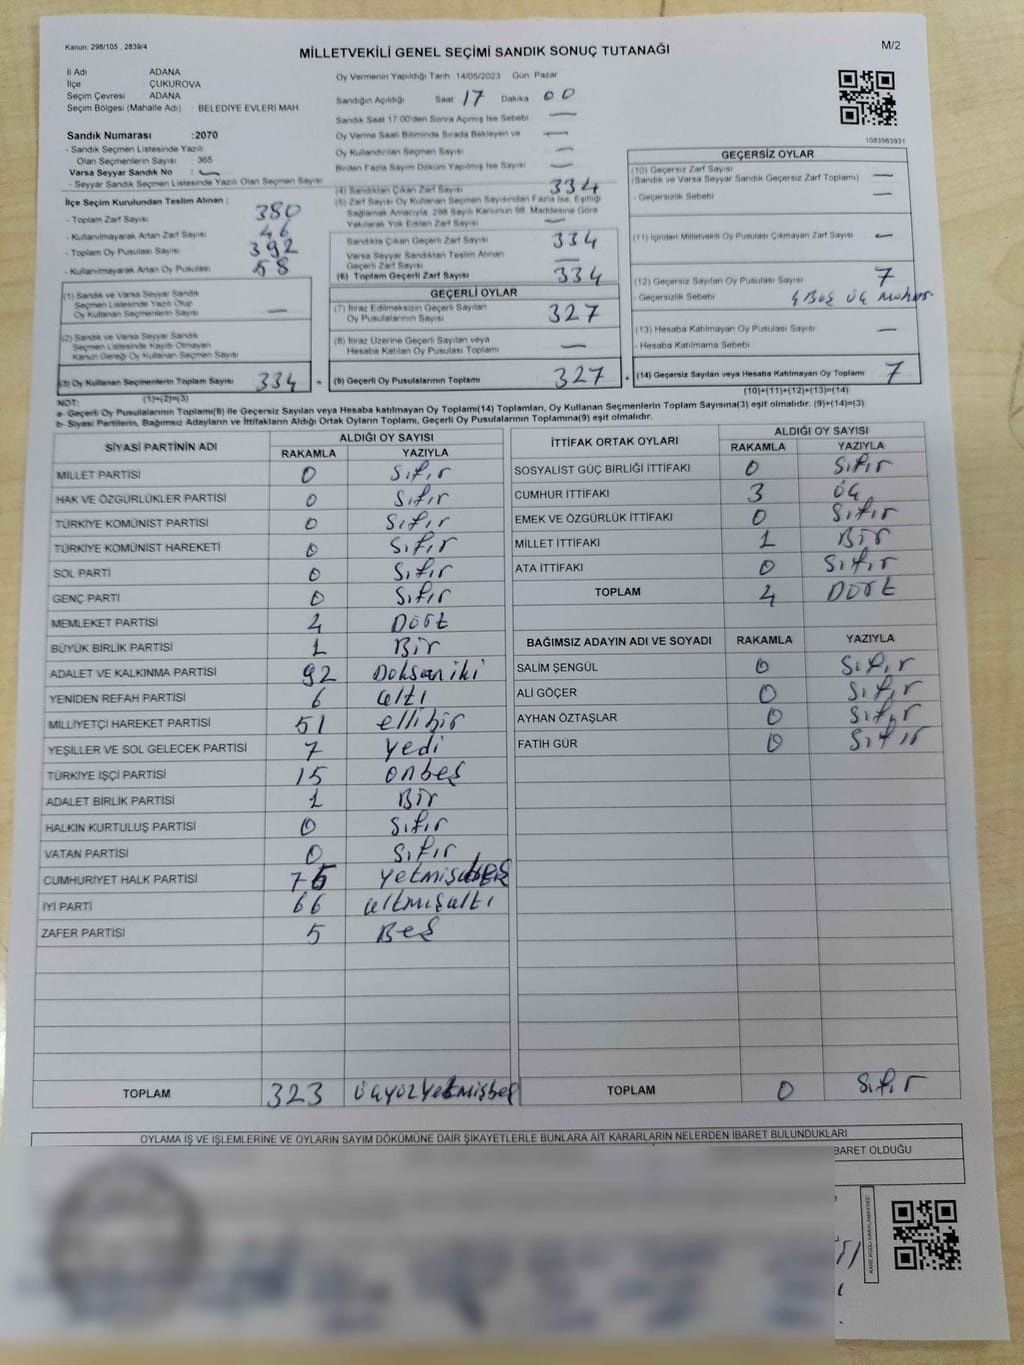 Kanun: 298/105 , 2839/4
MİLLETVEKİLİ GENEL SEÇİMİ SANDIK SONUÇ TUTANAĞI
M/2
İl Adı ADANA
İlçe ÇUKUROVA
Seçim Çevresi ADANA
Seçim Bölgesi (Mahalle Adı) : BELEDİYE EVLERİ MAH.
Oy Vermenin Yapıldığı Tarih :14/05/2023 Gün: Pazar
Sandığın Açıldığı Saat 17 Dakika 00
Sandık Saat 17:00'den Sonra Açımış İse Sebebi —
Oy Verme Saati Bitiminde Sırada Bekleyen ve —
Oy Kullandırılan Seçmen Sayısı —
Birden Fazla Sayım Döküm Yapılmış İse Sayısı —
1083563931
Sandık Numarası :2070
- Sandık Seçmen Listesinde Yazılı
Olan Seçmenlerin Sayısı : 365
Varsa Seyyar Sandık No : —
- Seyyar Sandık Seçmen Listesinde Yazılı Olan Seçmen Sayısı
İlçe Seçim Kurulundan Teslim Alınan :
- Toplam Zarf Sayısı 380
- Kullanılmayarak Artan Zarf Sayısı 46
- Toplam Oy Pusulası 392
- Kullanılmayarak Artan Oy Pusulası 58
(1) Sandık ve Varsa Seyyar Sandık
Seçmen Listesinde Yazılı Olup
Oy Kullanan Seçmenlerin Sayısı —
(2) Sandık ve Varsa Seyyar Sandık
Seçmen Listesinde Kayıtlı Olmayan
Kanun Gereği Oy Kullanan Seçmen Sayısı
(3) Oy Kullanan Seçmenlerin Toplam Sayısı 334 =
(1)+(2)=(3)
(4) Sandıktan Çıkan Zarf Sayısı 334
(5) Zarf Sayısı Oy Kullanan Seçmen Sayısından Fazla İse, Eşitliği
Sağlamak Amacıyla, 298 Sayılı Kanunun 98. Maddesine Göre
Yakılarak Yok Edilen Zarf Sayısı —
Sandıkta Çıkan Geçerli Zarf Sayısı 334
Varsa Seyyar Sandıktan Teslim Alınan
Geçerli Zarf Sayısı —
(6) Toplam Geçerli Zarf Sayısı 334
GEÇERLİ OYLAR
(7) İtiraz Edilmeksizin Geçerli Sayılan
Oy Pusulalarının Sayısı 327
(8) İtiraz Üzerine Geçerli Sayılan veya
Hesaba Katılan Oy Pusulası Toplamı —
(9) Geçerli Oy Pusulalarının Toplamı 327 +
GEÇERSİZ OYLAR
(10) Geçersiz Zarf Sayısı
(Sandık ve Varsa Seyyar Sandık Geçersiz Zarf Toplamı) —
- Geçersizlik Sebebi —
(11) İçinden Milletvekili Oy Pusulası Çıkmayan Zarf Sayısı —
(12) Geçersiz Sayılan Oy Pusulası Sayısı 7
- Geçersizlik Sebebi 4 Boş üç mühür
(13) Hesaba Katılmayan Oy Pusulası Sayısı —
- Hesaba Katılmama Sebebi
(14) Geçersiz Sayılan veya Hesaba Katılmayan Oy Toplamı 7
(10)+(11)+(12)+(13)=(14)
NOT:
a- Geçerli Oy Pusulalarının Toplamı(9) ile Geçersiz Sayılan veya Hesaba katılmayan Oy Toplamı(14) Toplamları, Oy Kullanan Seçmenlerin Toplam Sayısına(3) eşit olmalıdır. (9)+(14)=(3)
b- Siyasi Partilerin, Bağımsız Adayların ve İttifakların Aldığı Ortak Oyların Toplamı, Geçerli Oy Pusulalarının Toplamına(9) eşit olmalıdır.
SİYASİ PARTİNİN ADI ALDIĞI OY SAYISI
RAKAMLA YAZIYLA
MİLLET PARTİSİ 0 Sıfır
HAK VE ÖZGÜRLÜKLER PARTİSİ 0 Sıfır
TÜRKİYE KOMÜNİST PARTİSİ 0 Sıfır
TÜRKİYE KOMÜNİST HAREKETİ 0 Sıfır
SOL PARTİ 0 Sıfır
GENÇ PARTİ 0 Sıfır
MEMLEKET PARTİSİ 4 Dört
BÜYÜK BİRLİK PARTİSİ 1 Bir
ADALET VE KALKINMA PARTİSİ 92 Doksaniki
YENİDEN REFAH PARTİSİ 6 altı
MİLLİYETÇİ HAREKET PARTİSİ 51 ellibir
YEŞİLLER VE SOL GELECEK PARTİSİ 7 yedi
TÜRKİYE İŞÇİ PARTİSİ 15 onbeş
ADALET BİRLİK PARTİSİ 1 Bir
HALKIN KURTULUŞ PARTİSİ 0 Sıfır
VATAN PARTİSİ 0 Sıfır
CUMHURİYET HALK PARTİSİ 75 yetmişbeş
İYİ PARTİ 66 altmışaltı
ZAFER PARTİSİ 5 Beş
TOPLAM 323 üçyüzyetmişbeş
İTTİFAK ORTAK OYLARI ALDIĞI OY SAYISI
RAKAMLA YAZIYLA
SOSYALİST GÜÇ BİRLİĞİ İTTİFAKI 0 Sıfır
CUMHUR İTTİFAKI 3 üç
EMEK VE ÖZGÜRLÜK İTTİFAKI 0 Sıfır
MİLLET İTTİFAKI 1 Bir
ATA İTTİFAKI 0 Sıfır
TOPLAM 4 Dört
BAĞIMSIZ ADAYIN ADI VE SOYADI RAKAMLA YAZIYLA
SALİM ŞENGÜL 0 Sıfır
ALİ GÖÇER 0 Sıfır
AYHAN ÖZTAŞLAR 0 Sıfır
FATİH GÜR 0 Sıfır
TOPLAM 0 Sıfır
OYLAMA İŞ VE İŞLEMLERİNE VE OYLARIN SAYIM DÖKÜMÜNE DAİR ŞİKAYETLERLE BUNLARA AİT KARARLARIN NELERDEN İBARET BULUNDUKLARI
BARET OLDUĞU